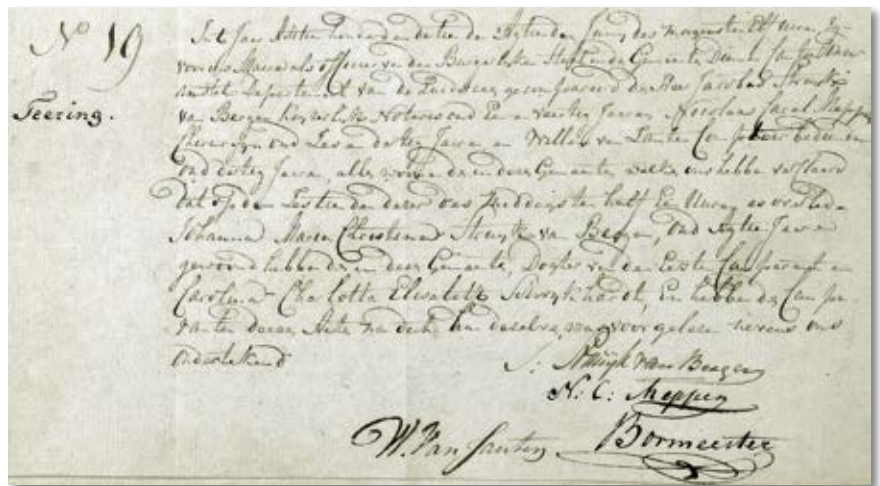 N° 19
Teering.
In't Jaar Achttien honderd en dertien den Agtienden Juny des morgens ten Elf uuren
voor ons Maire als officier van den Burgerlijken Staat en de Gemeente Diemen Canton
in het departement van de Zuiderzee, gecompareerd de Heer Jacobus Struijk
van Bergen Keyserlyke Notaris oud Een en veertig Jaaren, Nicolaas Meppen
Chirurgyn oud Zes en dertig Jaaren en Willem van Santen
oud dertig Jaaren, alle woonende in deze Gemeente, welke ons hebben verklaard
dat op den Zestienden dezer des middags ten half Een Uuren, is overleden
Johanna Maria Christina Struyk van Bergen, oud Agtien Jaaren
gewoond hebbende in deze Gemeente, Dogter van den Eersten Comparant en
Carolina Charlotta Elisabeth, En hebben de Compa-
ranten deeze Acte na dat hun dezelve was voorgelesen nevens ons
onderteekend
J: Struijk van Bergen
N: C: Meppen
W. Van Santen Bormeester